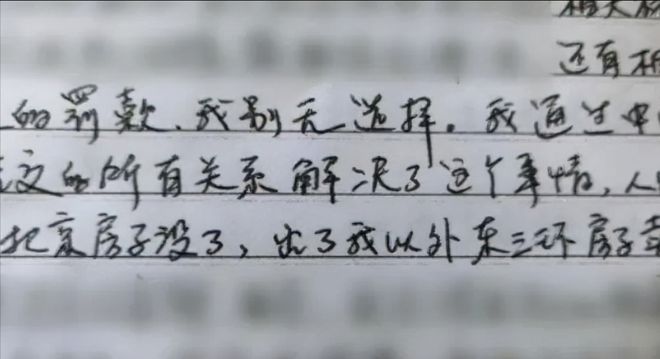 还有
的罚款、我别无选择。我通过中
交的所有关系解决了这个事情,人
北京房子没了,出了我以外东三环房子卖